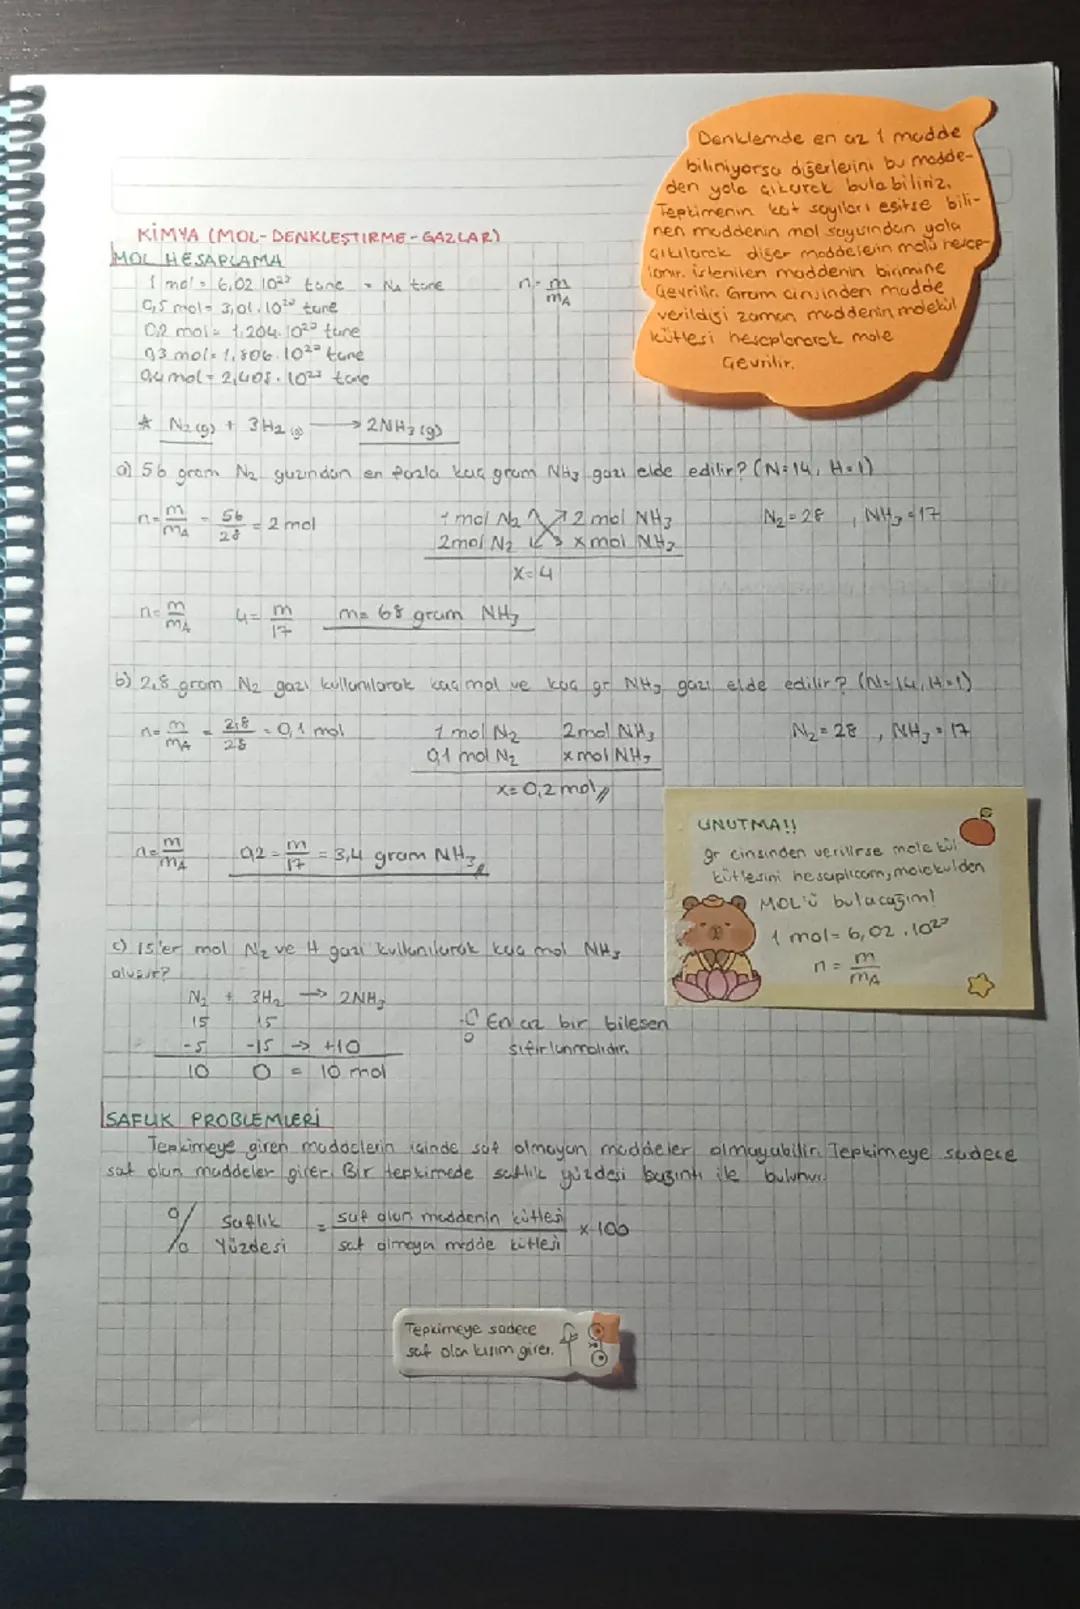 Denklemde en az 1 madde
biliniyorsa diğerlerini bu madde-
den yola çıkarak bulabiliriz.
Tepkimenin kat sayıları eşitse bili-
nen maddenin mol sayısından yola
çıkılarak diğer maddelerin molü hesap-
lanır. İstenilen maddenin birimine
çevrilir. Gram cinsinden madde
verildiği zaman maddenin molekül
kütlesi hesaplanarak mole
çevrilir.
KİMYA (MOL-DENKLEŞTİRME-GAZLAR)
MOL HESAPLAMA
1 mol = 6,02.10²³ tane = Na tane n = m/mA
0,5 mol = 3,01.10²³ tane
0,2 mol = 1,204.10²³ tane
0,3 mol = 1,806.10²³ tane
0,4 mol = 2,408.10²³ tane
* N₂(g) + 3H₂(g) → 2NH₃(g)
a) 56 gram N₂ gazından en fazla kaç gram NH₃ gazı elde edilir? (N=14, H=1)
n = m/mA = 56/28 = 2 mol 1 mol N₂ 2 mol NH₃ N₂ = 28 , NH₃ = 17
2 mol N₂ x mol NH₃
x = 4
n = m/mA 4 = m/17 m = 68 gram NH₃
b) 2,8 gram N₂ gazı kullanılarak kaç mol ve kaç gr NH₃ gazı elde edilir? (N=14, H=1)
n = m/mA = 2,8/28 = 0,1 mol 1 mol N₂ 2 mol NH₃ N₂ = 28 , NH₃ = 17
0,1 mol N₂ x mol NH₃
x = 0,2 mol //
n = m/mA 0,2 = m/17 = 3,4 gram NH₃ //
UNUTMA!!
gr cinsinden verilirse molekül
kütlesini hesaplıcam, molekülden
MOL'ü bulacağım!
1 mol = 6,02.10²³
n = m/mA
c) 15'er mol N₂ ve H gazı kullanılarak kaç mol NH₃
oluşur?
N₂ + 3H₂ → 2NH₃
15 15
-5 -15 → +10
10 0 = 10 mol
En az bir bileşen
sıfırlanmalıdır.
SAFLIK PROBLEMLERİ
Tepkimeye giren maddelerin içinde saf olmayan maddeler olmayabilir. Tepkimeye sadece
saf olan maddeler girer. Bir tepkimede saflık yüzdesi bağıntı ile bulunur.
% Saflık Yüzdesi = saf olan maddenin kütlesi / saf olmayan madde kütlesi x 100
Tepkimeye sadece
saf olan kısım girer.